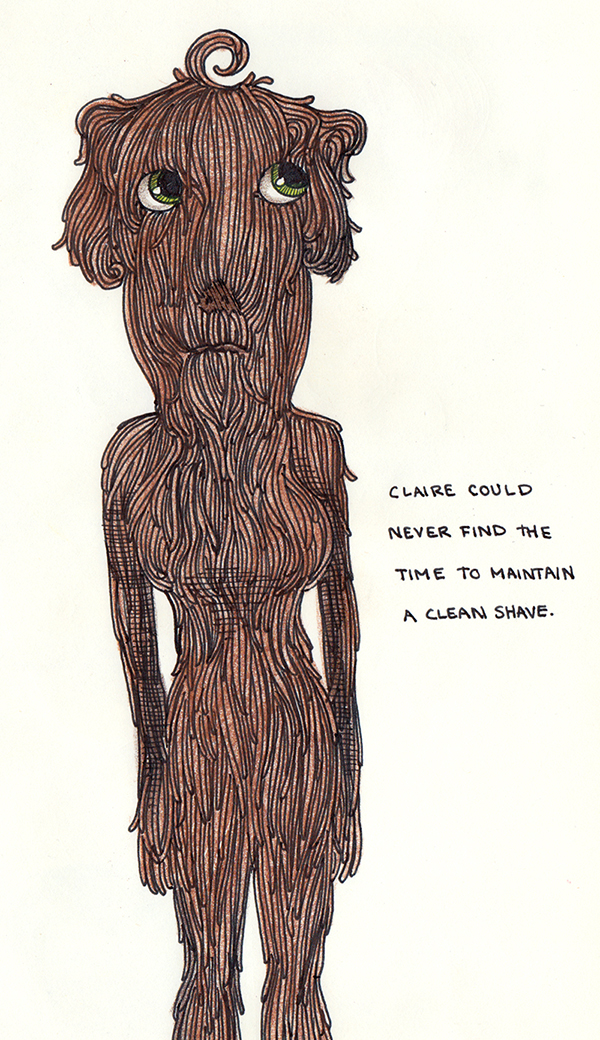 CLAIRE COULD
NEVER FIND THE
TIME TO MAINTAIN
A CLEAN SHAVE.